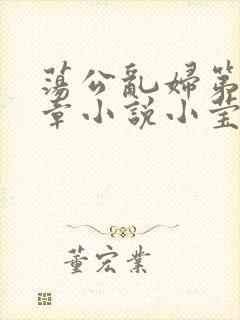 蕩公亂婦第
章小説小莹
董宏業